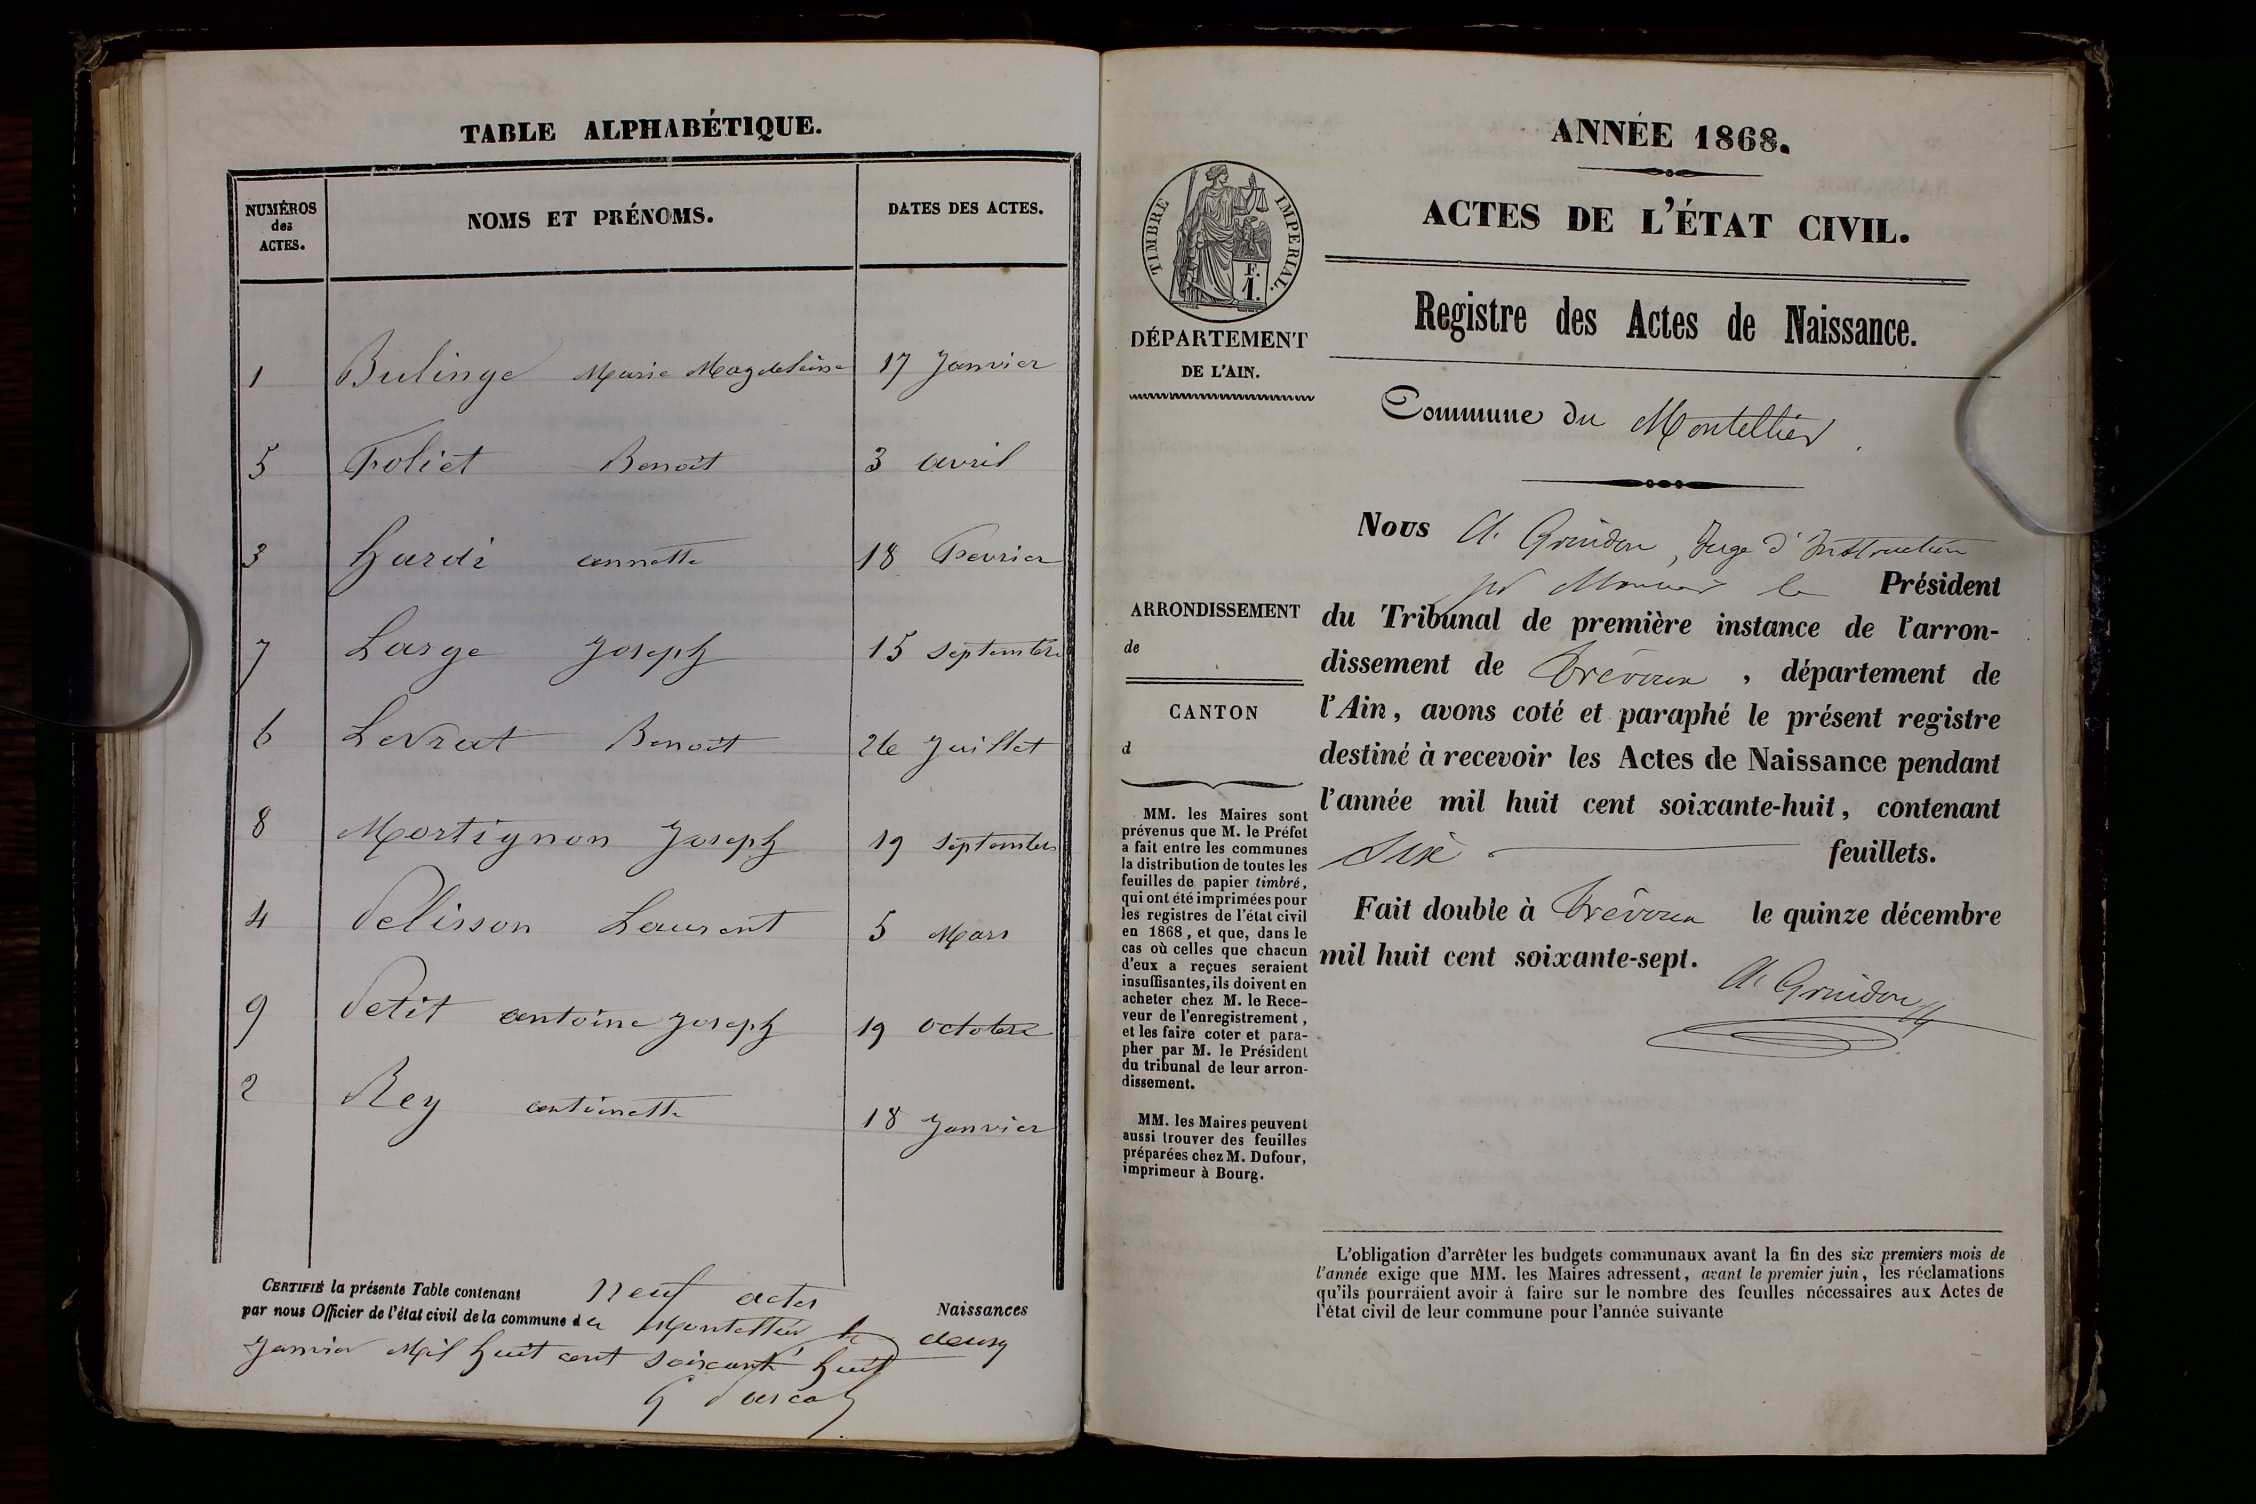 TABLE ALPHABÉTIQUE.
NUMÉROS
des
ACTES.
NOMS ET PRÉNOMS.
DATES DES ACTES.
1 Bulinge Marie Magdeleine 17 Janvier
5 Foliet Benoit 3 avril
3 Hardi annette 18 Fevrier
7 Large Joseph 15 Septembre
6 Levrat Benoit 26 Juillet
8 Mortignon Joseph 19 Septembre
4 Pelisson Laurent 5 Mars
9 Petit antoine Joseph 19 octobre
2 Rey antoinette 18 Janvier
CERTIFIÉ la présente Table contenant neuf actes Naissances
par nous Officier de l'état civil de la commune de Montellier le deux
Janvier Mil huit cent soixante huit
ANNÉE 1868.
ACTES DE L'ÉTAT CIVIL.
TIMBRE IMPERIAL.
F.
1.
Registre des Actes de Naissance.
DÉPARTEMENT
DE L'AIN.
Commune du Montellier.
Nous A. Grindon, Juge d'Instruction
pr Monsieur le Président
du Tribunal de première instance de l'arron-
dissement de Trévoux, département de
l'Ain, avons coté et paraphé le présent registre
destiné à recevoir les Actes de Naissance pendant
l'année mil huit cent soixante-huit, contenant
Six feuillets.
Fait double à Trévoux le quinze décembre
mil huit cent soixante-sept.
A. Grindon
ARRONDISSEMENT
de
CANTON
d
MM. les Maires sont
prévenus que M. le Préfet
a fait entre les communes
la distribution de toutes les
feuilles de papier timbré,
qui ont été imprimées pour
les registres de l'état civil
en 1868, et que, dans le
cas où celles que chacun
d'eux a reçues seraient
insuffisantes, ils doivent en
acheter chez M. le Rece-
veur de l'enregistrement,
et les faire coter et para-
pher par M. le Président
du tribunal de leur arron-
dissement.
MM. les Maires peuvent
aussi trouver des feuilles
préparées chez M. Dufour,
imprimeur à Bourg.
L'obligation d'arrêter les budgets communaux avant la fin des six premiers mois de
l'année exige que MM. les Maires adressent, avant le premier juin, les réclamations
qu'ils pourraient avoir à faire sur le nombre des feuilles nécessaires aux Actes de
l'état civil de leur commune pour l'année suivante